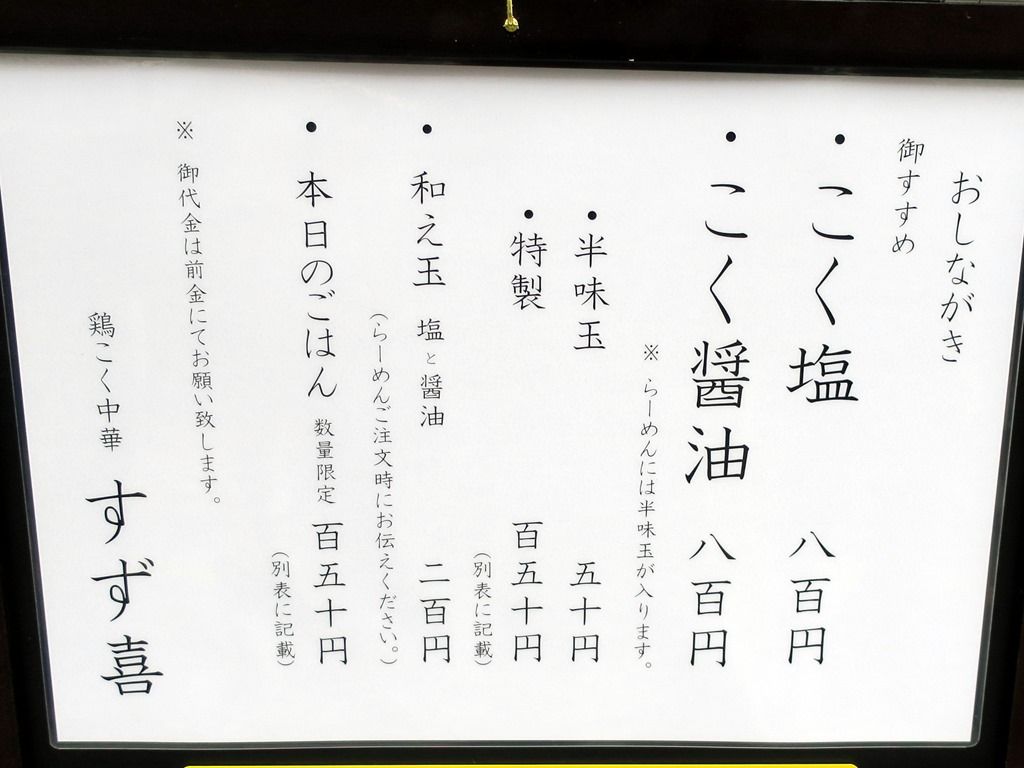 おしながき
御すすめ
・こく塩 八百円
・こく醤油 八百円
※ らーめんには半味玉が入ります。
・半味玉 五十円
・特製 百五十円
(別表に記載)
・和え玉 塩と醤油 二百円
(らーめんご注文時にお伝えください。)
・本日のごはん 数量限定 百五十円
(別表に記載)
※ 御代金は前金にてお願い致します。
鶏こく中華 すず喜